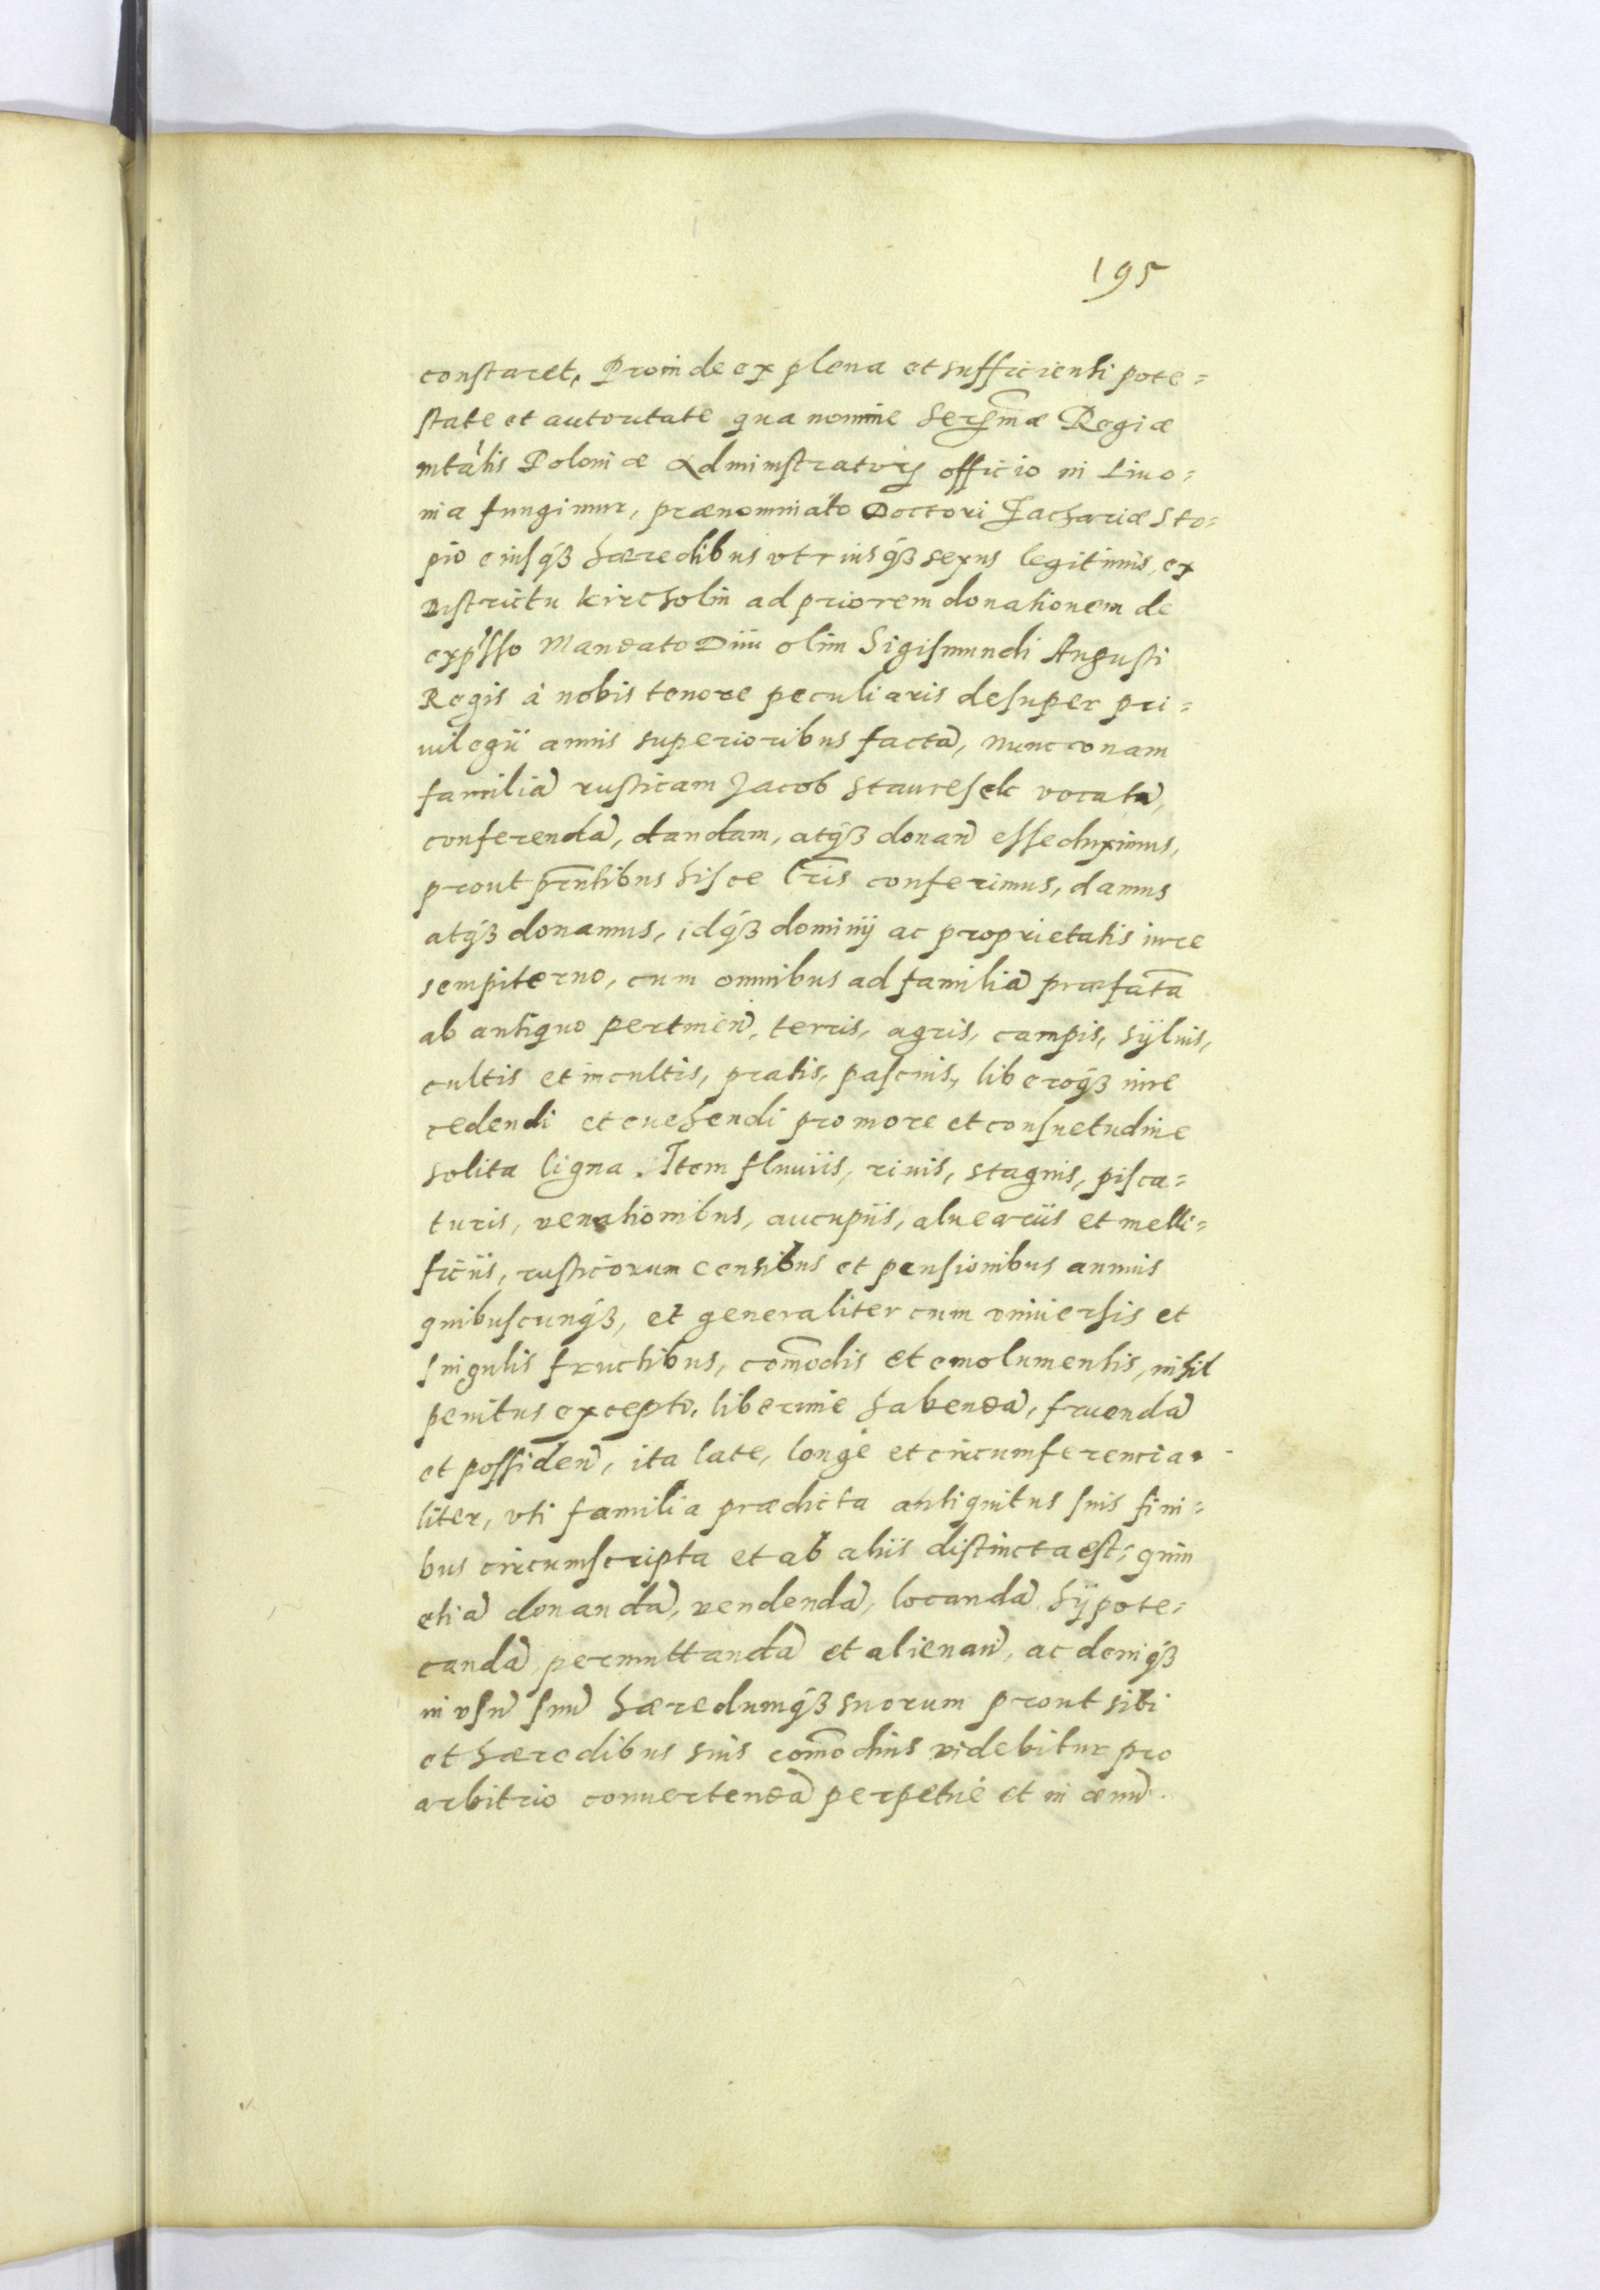 195
constaret, Proinde ex plena et sufficienti pote=
state et autoritate qua nomine Serm̃æ Regiæ
mtatis Poloniæ Administratorẏ officio in Liuo=
nia fungimur, prænominato Doctori Zachariæ Sto=
pio eiusqʒ hæredibus vtriusqʒ sexus legitimis, ex
districtu kircholm ad priorem donationem de
exp̃sso Mandato Diui olim Sigismundi Augusti
Regis á nobis tenore peculiaris desuper pri=
uilegii annis superioribus factã, nunc vnam
familiã rusticam Jacob vocatã,
conferendã, dandam, atqʒ donañ esse duximus,
prout p̃ntibus hisce l̃ris conferimus, damus
atqʒ donamus, idqʒ dominij ac proprietatis iure
sempiterno, cum omnibus ad familiã præfatã
ab antiquo pertineñ, terris, agris, campis, sÿluis,
cultis et incultis, pratis, pascuis, liberoqʒ iure
cedendi et euehendi pro more et consuetudine
solita ligna. Item fluuiis, riuis, stagnis, pisca=
turis, venationibus, aucupiis, aluearciis et melli=
ficiis, rusticorum censibus et pensionibus annuis
quibuscunqʒ, et generaliter cum vniuersis et
singulis fructibus, com̃odis et emolumentis, nihil
penitus excepto, liberime habendã, fruendã
et possideñ, ita late, longé et circumferencia=
liter, vti familia prædicta antiquitus suis fini=
bus circumscripta et ab aliis distincta est; quin
etiã donandã, vendendã, locandã hÿpote=
candã, permuttandã et alienañ, ac deniqʒ
in vsũ suũ hæredumqʒ suorum prout sibi
et hæredibus suis com̃odius videbitur pro
arbitrio conuertendã perpetué et in æuũ.